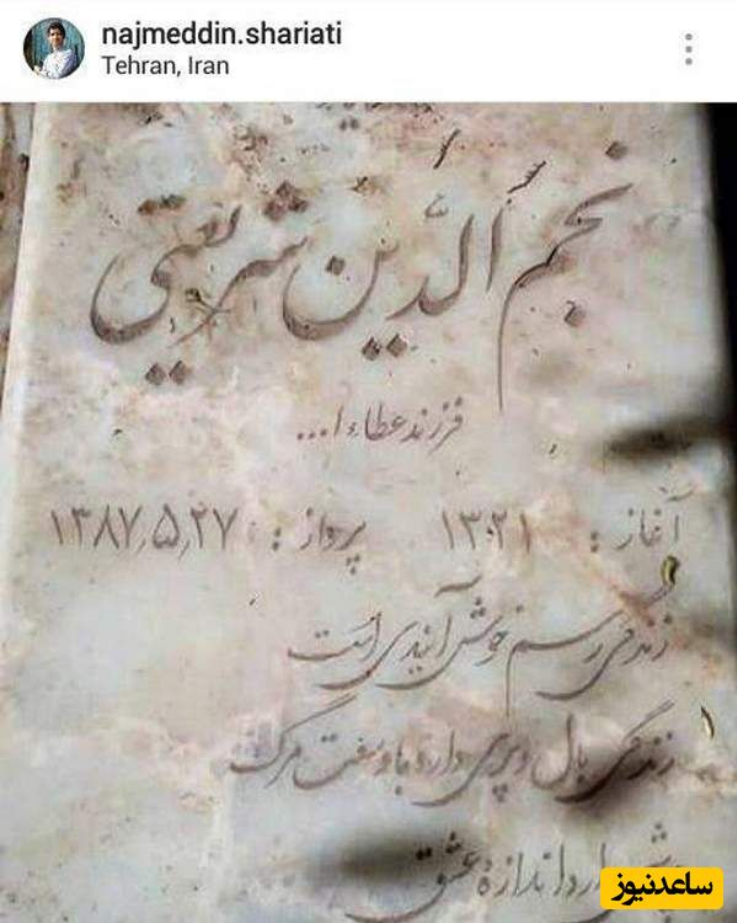 najmeddin.shariati
Tehran, Iran
نجم اُلدّین شریعتی
فرزند عطاء ا...
آغاز: ۱۳۲۱ پرواز: ۱۳۸۷٫۵٫۲۷
زندگی رسم خوش آیندی است
زندگی بال و پری دارد با وسعت مرگ
دارد اندازۀ عشق
ساعدنیوز